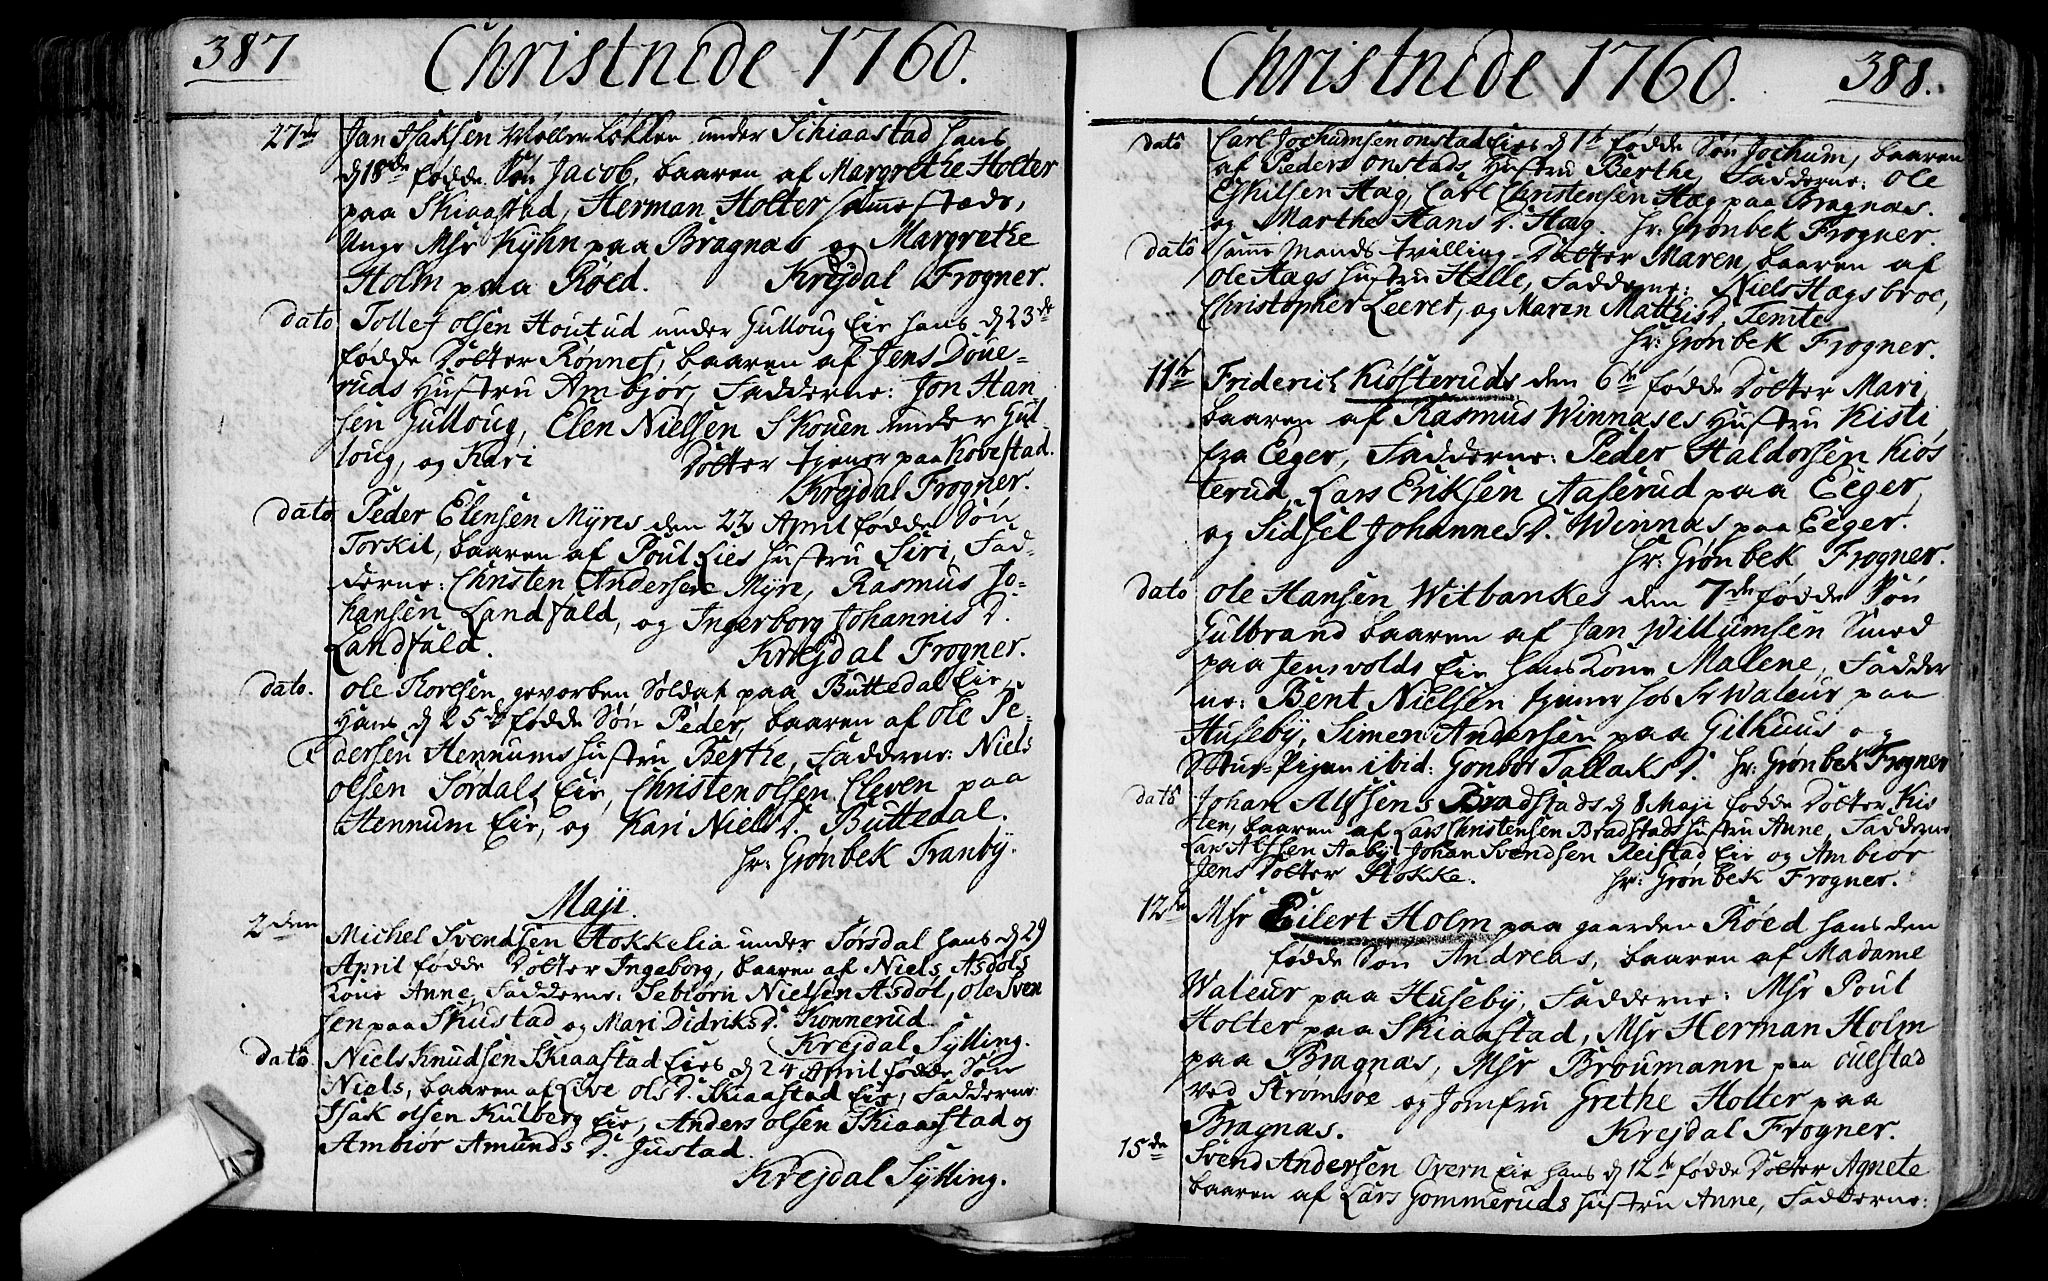 387 Christnede 1760.
27de Jan Isaksen Møller Løkken under Schiaastad hans
d 18de fødde Søn Jacob, baaren af Margrethe Holter
paa Skiaastad, Herman Holter samestads,
Unge Msr Kyhn paa Bragnas og Margrethe
Holm paa Røed. Krejdal Frogner.
dato Tollef olsen Houtud under Gulloug Eie hans d 23de
fødde Dotter Rønnef, baaren af Jens Doue-
ruds Hustru Ambjør, Fadderne: Jon Han
sen Gulloug, Elen Nielsen Skouen under Gul-
loug, og Kari Dotter tjener paa Kobestad.
Krejdal Frogner.
dato Peder Elensen Myres den 22 April fødde Søn
Torkil, baaren af Poul Lies Hustru Siri, Fad-
derne: Christen Andersen Myre, Rasmus Jo-
hansen Landfald, og Ingerborg Johannis D.
Landfald. Krejdal Frogner.
dato. Ole Korelsen, gevorben Soldat paa Buttedal Eie,
Hans d 25de fødde Søn Peder, baaren af Ole Pe-
dersen Hennums Hustru Berthe, Fadderne: Niels
olsen Sørdals Eie, Christen olsen Eleven paa
Hennum Eie, og Kari Niels D. Buttedal.
Hr: Grønbek Tranby.
Maji.
2den Michel Svendsen Stokkelia under Sørsdal hans d 29
April fødde Dotter Ingeborg, baaren af Niels Asdøls
Kone Anne, Fadderne: Sebiørn Nielsen Asdøl, Ole Sven
sen paa Skustad og Mari Didriks D. Konnerud.
Krejdal Sylling.
dato Niels Knudsen Skiaastad Eies d 24 April fødde Søn
Niels, baaren af Live Ols D. Skiaastad Eie, Fadderne:
Isak olsen Kulberg Eie, Anders olsen Skiaastad og
Ambiør Amunds D. Justad.
Krejdal Sylling.
Christnede 1760. 388.
dato Carl Jochumsen onstad Eies d 1te fødde Søn Jochum, baaren
af Peders onstads Hustru Berthe, Fadderne: Ole
Eskilsen Hæg, Carl Christensen Hæg paa Bragnas.
og Marthe Hans D. Hæg. Hr: Grønbek Frogner.
dato samme Mands tvilling-Datter Maren, baaren af
Ole Hægs Hustru Helle, Fadderne: Niels Hægsbroe,
Christopher Leeret, og Maren Matthis D. Temte
Hr: Grønbek Frogner.
11te Friderich Kiøsteruds den 6te fødde Dotter Mari
baaren af Rasmus Winnases Hustru Kisti,
fra Eeger, Fadderne: Peder Haldorsen Kiøs
terud, Lars Eriksen Aaserud paa Eeger,
og Sidsel Johannes D. Winnas paa Eeger.
Hr: Grønbek Frogner.
dato Ole Hansen Witbankes den 7de fødde Søn
Gulbrand baaren af Jan Willumsen Smed
paa Jensvolds Eie hans Kone Malene, Fadder
ne: Bent Nielsen tjener hos Sr Waleur paa
Huseby, Simen Andersen paa Gilhuus og
Stue-Pigen ibid: Gonbor Tallaks D. Hr: Grønbek Frogner
dato Johan Alfsens Bradstads d 8 Maji fødde Dotter Kis
ten, baaren af Lars Christensen Bradstads Hustru Anne, Fadderne
Lars Alfsen Aaby, Johan Svendsen Reistad Eie og Ambiør
Jens Dotter Stokke. Hr: Grønbek Frogner.
12te Msr Eilert Holm paa gaarden Røed hans den
fødde Søn Andreas, baaren af Madame
Waleur paa Huseby, Fadderne: Msr Poul
Holter paa Skiaastad, Msr Herman Holm
paa Bragnas, Msr Broumann paa Ouestad
ved Strømsøe og Jomfru Grethe Holter paa
Bragnas. Krejdal Frogner.
15de Svend Andersen Overn Eie hans d 12te fødde Dotter Agnete
baaren af Lars Gommeruds Hustru Anne, Fadderne: